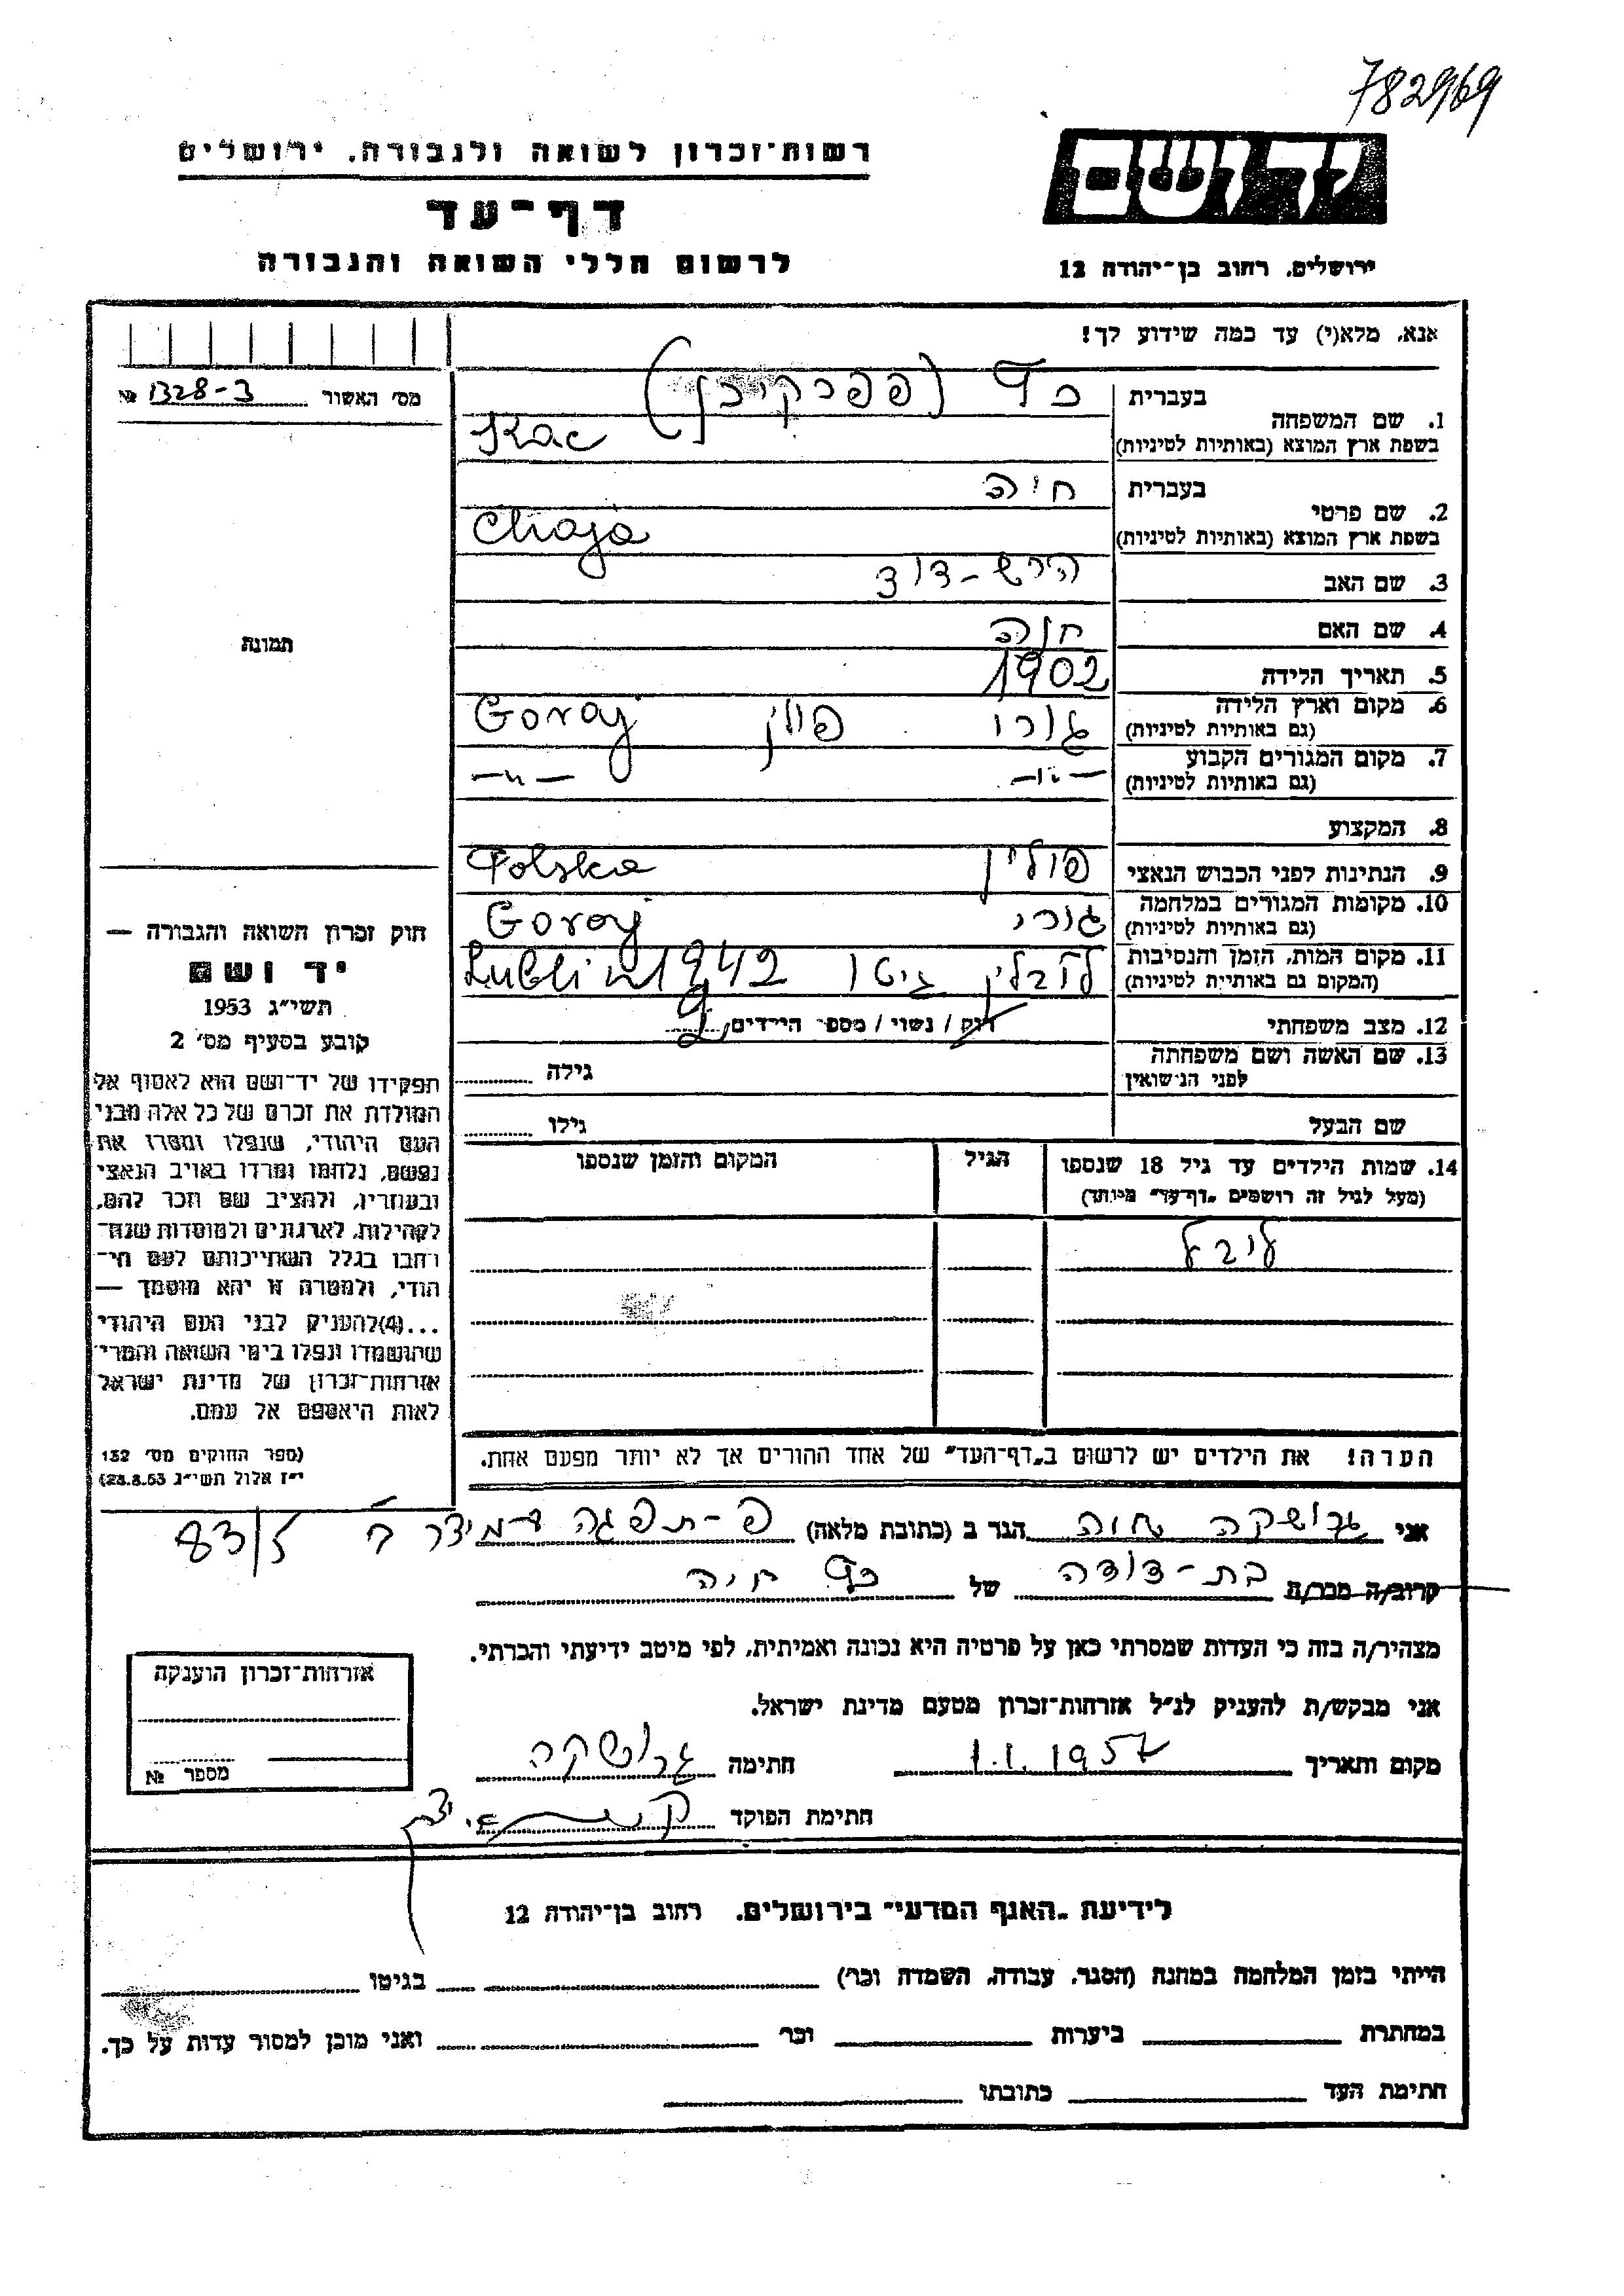 782969
רשות־זכרון לשואה ולגבורה. ירושלים
יד ושם
דף־עד
לרשום חללי השואה והגבורה
ירושלים, רחוב בן־יהודה 12
אנא, מלא(י) עד כמה שידוע לך!
מס׳ האשור 1328-3 №
בעברית כץ
1. שם המשפחה
בשפת ארץ המוצא (באותיות לטיניות) Kac
בעברית חיה
2. שם פרטי
בשפת ארץ המוצא (באותיות לטיניות) Chaja
3. שם האב הרש-דוד
4. שם האם חוה
תמונה
5. תאריך הלידה 1902
6. מקום וארץ הלידה גורי פולין Goroj
(גם באותיות לטיניות)
7. מקום המגורים הקבוע -"- -"-
(גם באותיות לטיניות)
8. המקצוע
9. הנתינות לפני הכבוש הנאצי פולין Polska
10. מקומות המגורים במלחמה גורי Goroj
(גם באותיות לטיניות)
11. מקום המות, הזמן והנסיבות לובלין גיטו 1942 Lublin
(המקום גם באותיות לטיניות)
12. מצב משפחתי רוק / נשוי / מספר הילדים 2
13. שם האשה ושם משפחתה גילה
לפני הנישואין
שם הבעל גילו
14. שמות הילדים עד גיל 18 שנספו הגיל המקום והזמן שנספו
(מעל לגיל זה רושמים „דף־עד” מיוחד)
לייבל
הערה! את הילדים יש לרשום ב„דף־העד” של אחד ההורים אך לא יותר מפעם אחת.
חוק זכרון השואה והגבורה —
יד ושם
תשי״ג 1953
קובע בסעיף מס׳ 2
תפקידו של יד־ושם הוא לאסוף אל
המולדת את זכרם של כל אלה מבני
העם היהודי, שנפלו ומסרו את
נפשם, נלחמו ומרדו באויב הנאצי
ובעוזריו, ולהציב שם וזכר להם,
לקהילות, לארגונים ולמוסדות שנח־
רחבו בגלל השתייכותם לעם הי־
הודי, ולמטרה זו יהא מוסמך —
...(4)להעניק לבני העם היהודי
שהושמדו ונפלו בימי השואה והמרי־
אזרחות־זכרון של מדינת ישראל
לאות היאספם אל עמם.
(ספר החוקים מס׳ 132
י״ז אלול תשי״ג 28.8.53)
אני גרושקה חוה הגר ב (כתובת מלאה) פ-תקוה 83/5
קרוב/ה מכר/ה בת-דודה של כץ חיה
מצהיר/ה בזה כי העדות שמסרתי כאן על פרטיה היא נכונה ואמיתית, לפי מיטב ידיעתי והכרתי.
אני מבקש/ת להעניק לנ״ל אזרחות־זכרון מטעם מדינת ישראל.
מקום ותאריך 1.1.1957 חתימה גרושקה
חתימת הפוקד
אזרחות־זכרון הוענקה
מספר №
לידיעת „האגף המדעי” בירושלים. רחוב בן־יהודה 12
הייתי בזמן המלחמה במחנה (הסגר, עבודה, השמדה וכו׳) בגיטו
במחתרת ביערות וכו׳ ואני מוכן למסור עדות על כך.
חתימת העד כתובתו